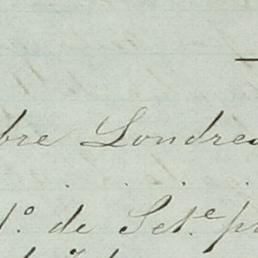 bre Londres
1.º de Set.e p